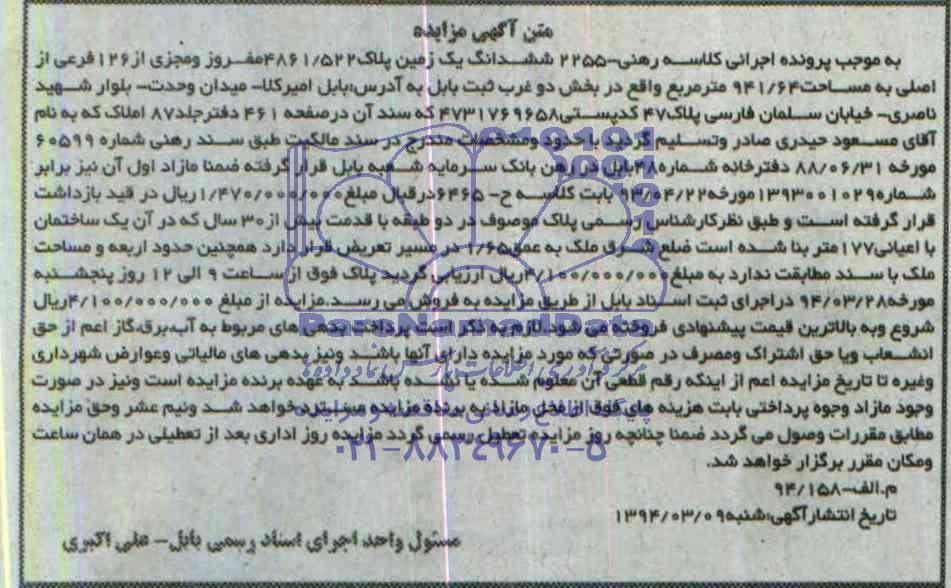 متن آگهی مزایده
به موجب پرونده اجرائی کلاسه رهنی-۲۲۵۵ ششدانگ یک زمین پلاک۴۸۶۱/۵۲۲مفروز ومجزی از۱۲۶فرعی از
اصلی به مساحت۹۴۱/۶۴ مترمربع واقع در بخش دو غرب ثبت بابل به آدرس:بابل امیرکلا- میدان وحدت- بلوار شهید
ناصری- خیابان سلمان فارسی پلاک۴۷ کدپستی۴۷۳۱۷۶۹۶۵۸ که سند آن درصفحه ۴۶۱ دفترجلد۸۷ املاک که به نام
آقای مسعود حیدری صادر وتسلیم گردید با حدود ومشخصات مندرج در سند مالکیت طبق سند رهنی شماره ۶۰۵۹۹
مورخه ۸۸/۰۶/۳۱ دفترخانه شماره۴۸بابل در رهن بانک سرمایه شعبه بابل قرار گرفته ضمنا مازاد اول آن نیز برابر
شماره۱۳۹۳۰۰۱۰۲۹مورخه۹۳/۰۴/۲۲ بابت کلاسه ح- ۶۴۶۵درقبال مبلغ۱/۴۷۰/۰۰۰/۰۰۰ریال در قید بازداشت
قرار گرفته است و طبق نظرکارشناس رسمی پلاک موصوف در دو طبقه با قدمت بیش از۳۰ سال که در آن یک ساختمان
با اعیانی۱۷۷متر بنا شده است ضلع شرق ملک به عمق۱/۶۵ در مسیر تعریض قرار دارد همچنین حدود اربعه و مساحت
ملک با سند مطابقت ندارد به مبلغ۴/۱۰۰/۰۰۰/۰۰۰ریال ارزیابی گردید پلاک فوق از ساعت ۹ الی ۱۲ روز پنجشنبه
مورخه۹۴/۰۳/۲۸ دراجرای ثبت اسناد بابل از طریق مزایده به فروش می رسد.مزایده از مبلغ ۴/۱۰۰/۰۰۰/۰۰۰ریال
شروع وبه بالاترین قیمت پیشنهادی فروخته می شود.لازم به ذکر است پرداخت بدهی های مربوط به آب،برق،گاز اعم از حق
انشعاب ویا حق اشتراک ومصرف در صورتی که مورد مزایده دارای آنها باشد ونیز بدهی های مالیاتی وعوارض شهرداری
وغیره تا تاریخ مزایده اعم از اینکه رقم قطعی آن معلوم شده یا نشده باشد به عهده برنده مزایده است ونیز در صورت
وجود مازاد وجوه پرداختی بابت هزینه های فوق از محل مازاد به برنده مزایده مسترد خواهد شد ونیم عشر وحق مزایده
مطابق مقررات وصول می گردد ضمنا چنانچه روز مزایده تعطیل رسمی گردد مزایده روز اداری بعد از تعطیلی در همان ساعت
ومکان مقرر برگزار خواهد شد.
م.الف-۹۴/۱۵۸
تاریخ انتشارآگهی:شنبه۱۳۹۴/۰۳/۰۹
مسئول واحد اجرای اسناد رسمی بابل- علی اکبری
ParsNamadData
مرکز فرآوری اطلاعات پارس نماد داده ها
۰۲۱-۸۸۳۴۹۶۷۰-۵